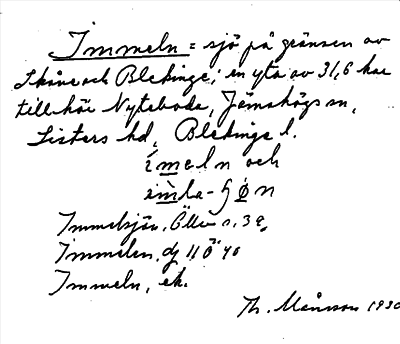 Immeln = sjö på gränsen av
Skåne och Blekinge; en yta av 31,6 har
tillhör Nyteboda, Jämshögs sn,
Listers hd, Blekinge l.
ímeln och
imla-ʃøn
Immelsjön,
Immelen, dj 11 Ö 40
Immeln, ek.
Th. Månsson 1930